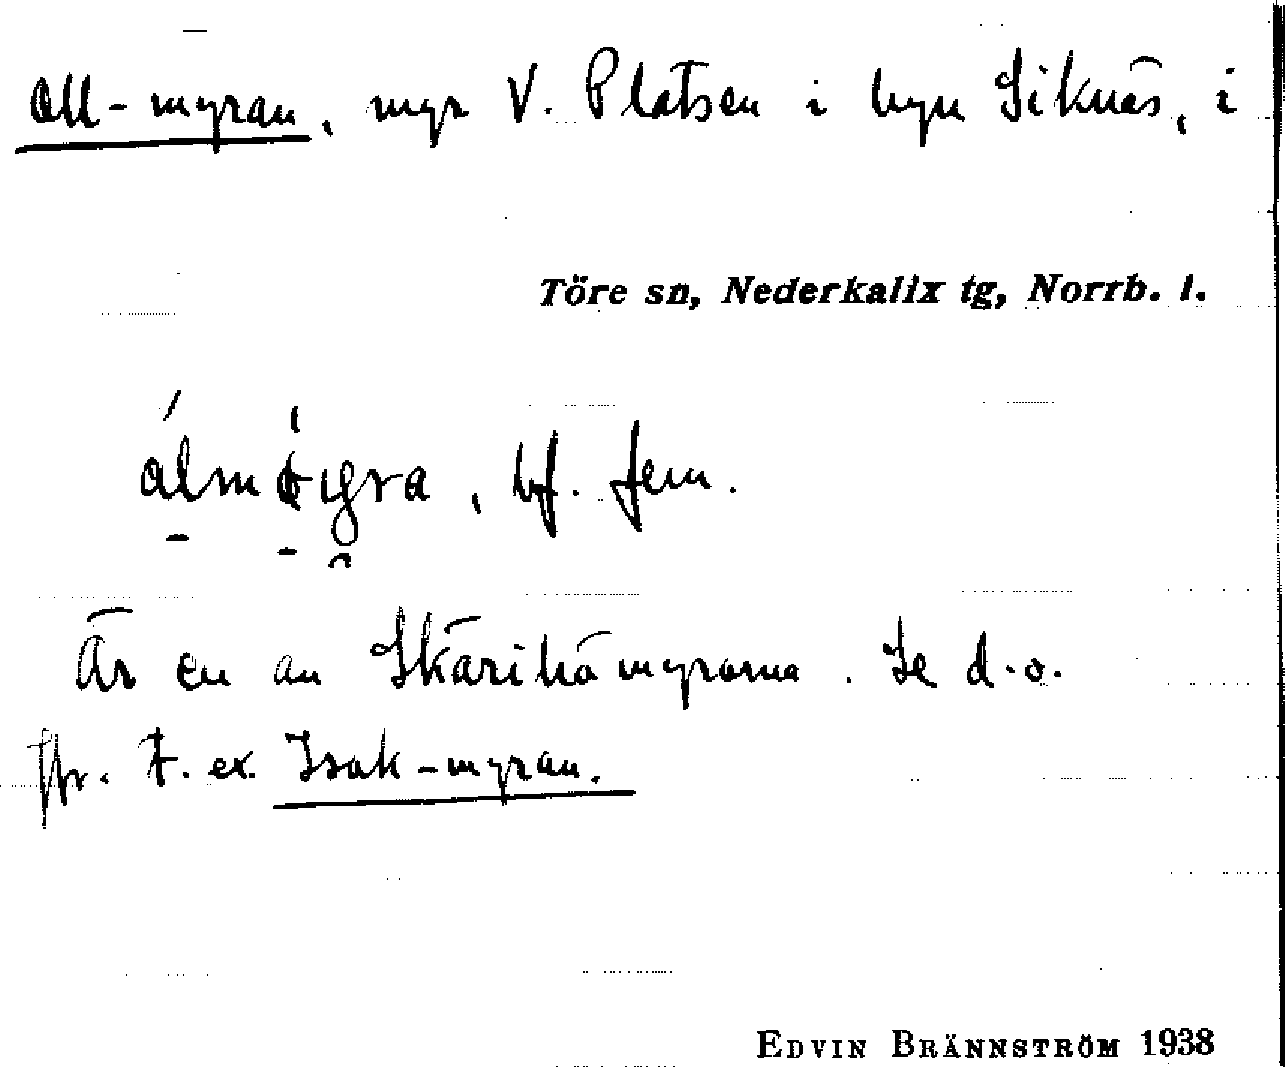 All-myran, myr V. Platsen i byn Siknäs, i
Töre sn, Nederkalix tg, Norrb. l.
bf. fem.
Är en av Skäribåmyrarna. Se d.o.
Jfr. t. ex. Isak-myran.
EDVIN BRÄNNSTRÖM 1938